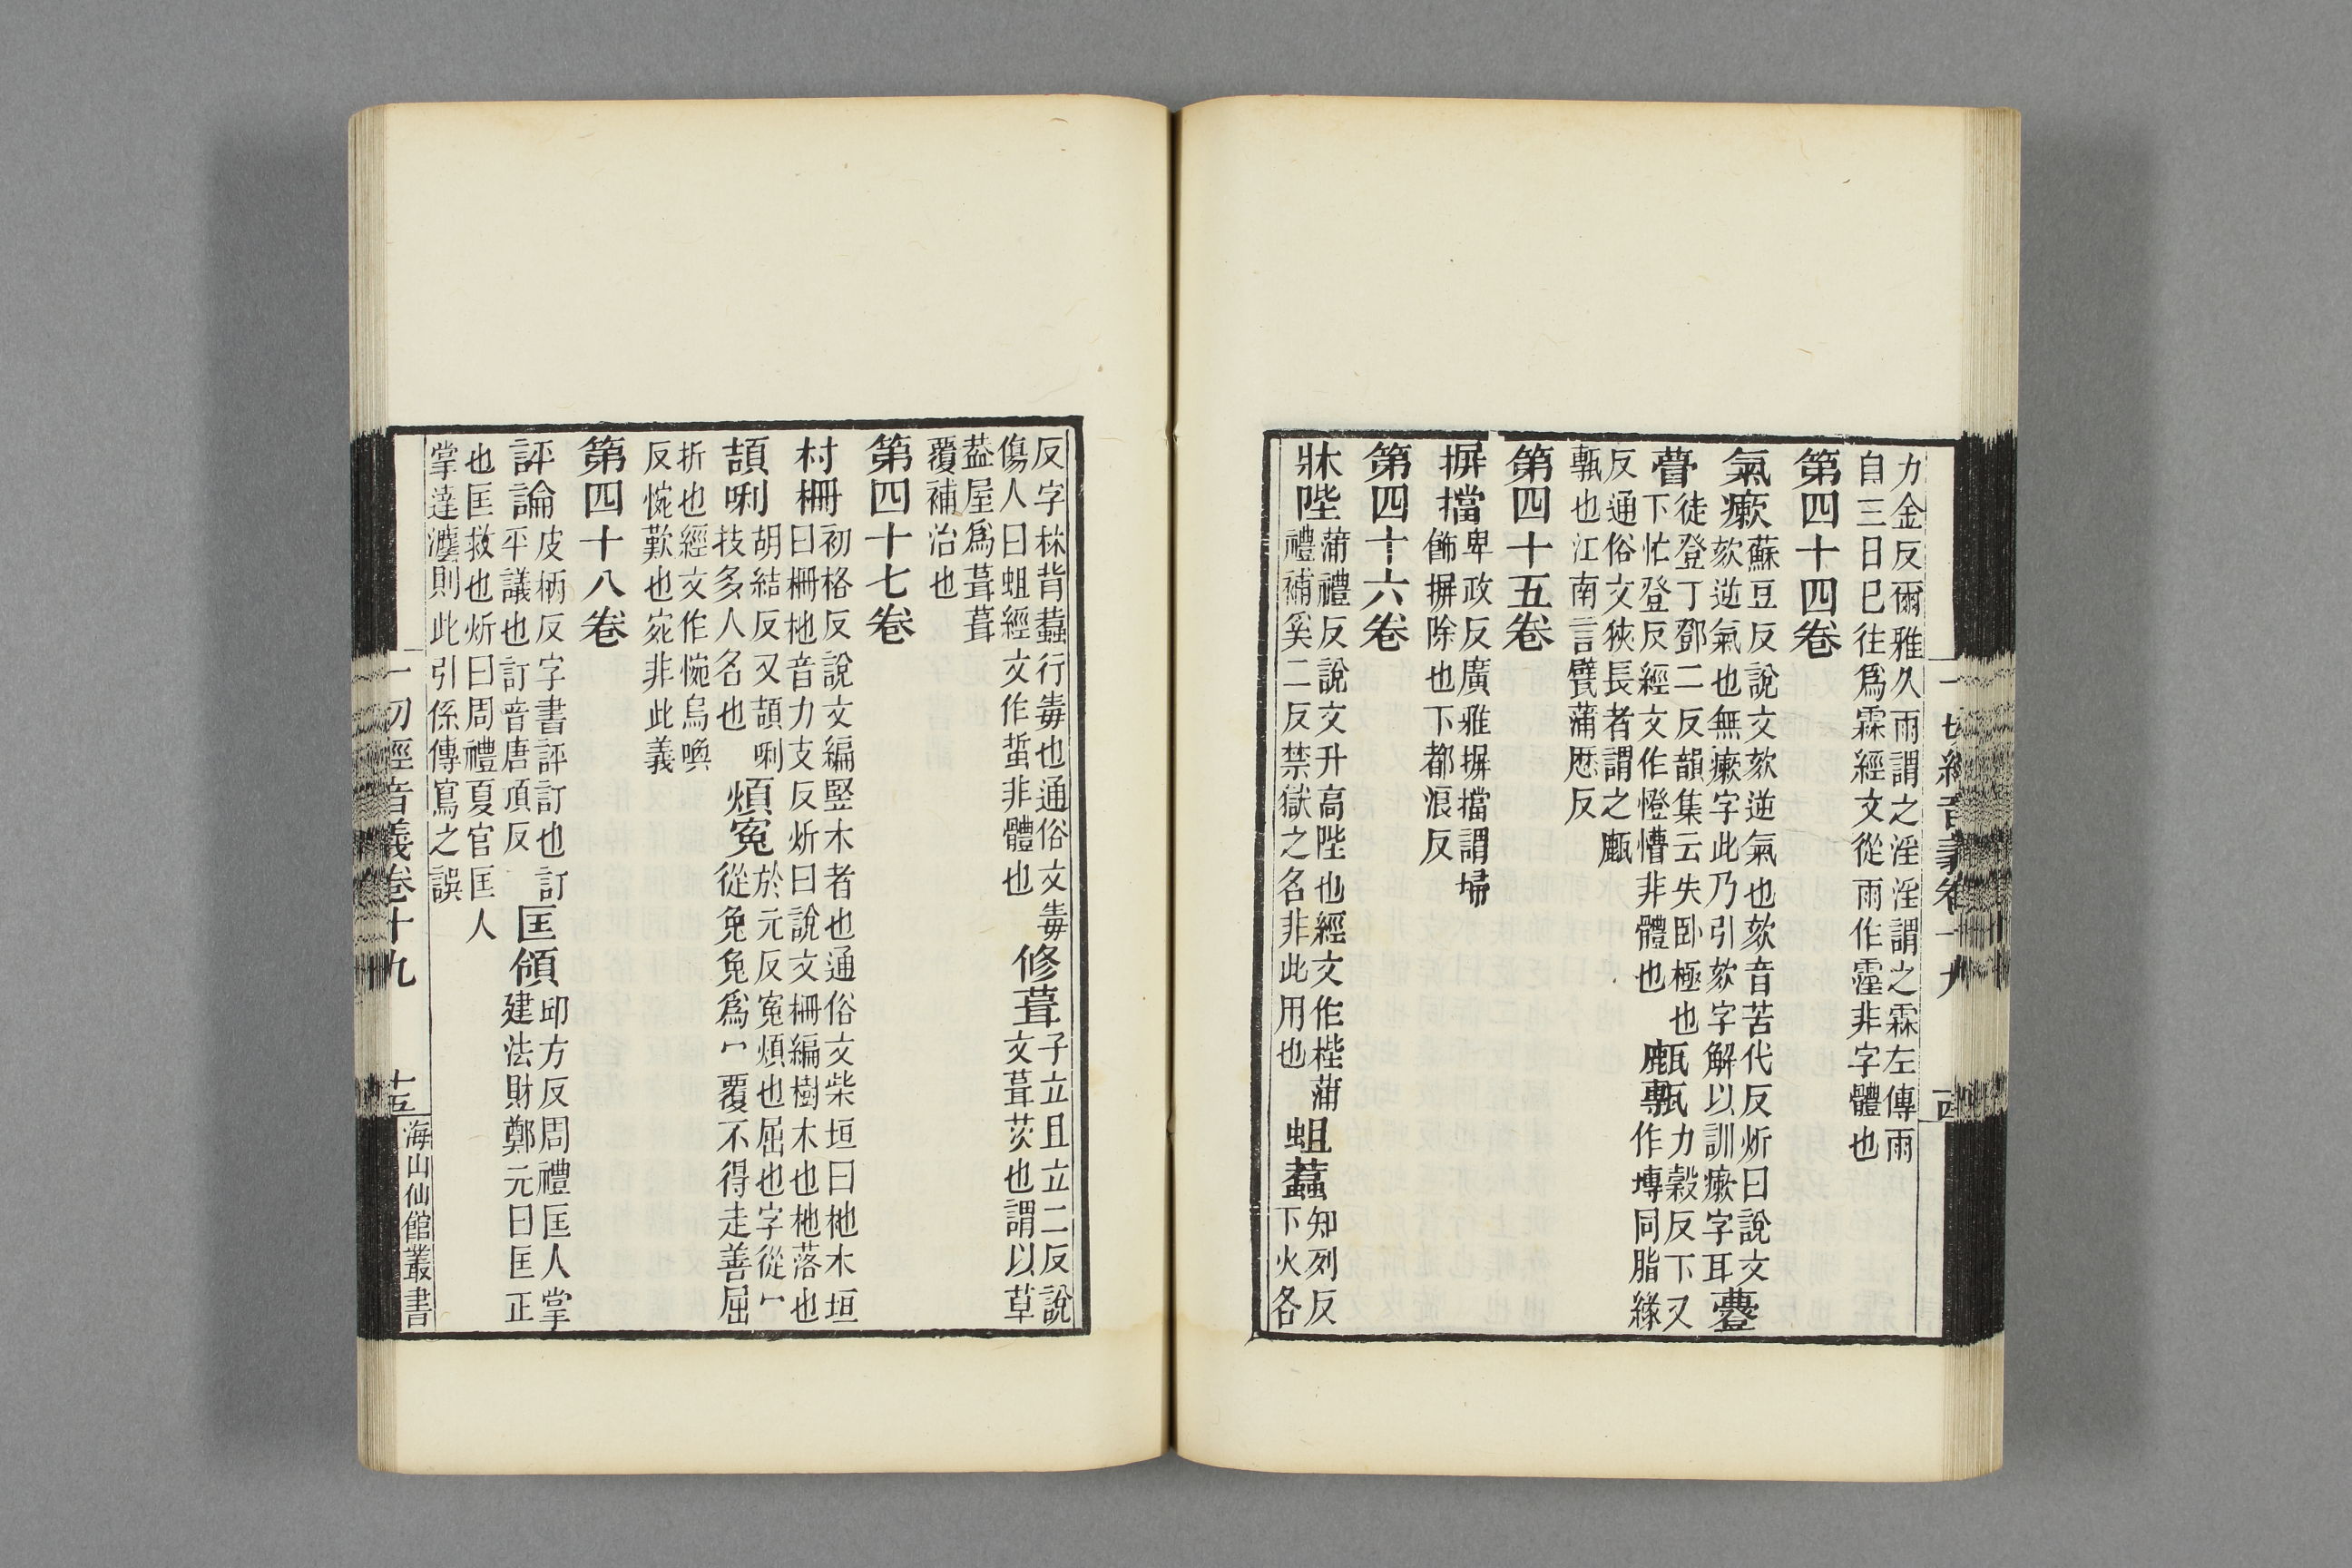 力金反爾雅久雨謂之淫淫謂之霖左傳雨
自三日巳往爲霖經文從雨作霪非字體也
第四十四卷
氣瘶蘇豆反說文欬逆氣也欬音苦代反炘曰說文
欬逆氣也無瘶字此乃引欬字解以訓瘶字耳
瞢徒登丁鄧二反韻集云失卧極也
下忙登反經文作憕懵非體也
甎力穀反下又
作塼同脂緣
反通俗文狹長者謂之㼾
甎也江南言甓蒲歷反
第四十五卷
摒擋卑政反廣雅摒擋謂埽
飾摒除也下都浪反
第四十六卷
牀陛蒲禮反說文升高陛也經文作梐蒲
禮補奚二反禁獄之名非此用也
蛆蠚知列反
下火各
一切經音義卷十九
十四
反字林背蠚行毒也通俗文毒
傷人曰蛆經文作蜇非體也
修葺子立且立二反說
文葺茨也謂以草
葢屋爲葺葺
覆補治也
第四十七卷
村柵初格反說文編竪木者也通俗文柴垣曰杝木垣
曰柵杝音力支反炘曰說文柵編樹木也杝落也
頡唎胡結反又頡唎
技多人名也
煩寃於元反寃煩也屈也字從冖
從兔兔爲冖覆不得走善屈
折也經文作惋烏喚
反惋歎也宛非此義
第四十八卷
評論皮柄反字書評訂也訂
平議也訂音唐頂反
匡領邱方反周禮匡人掌
建法財鄭元曰匡正
也匡救也炘曰周禮夏官匡人
掌達灋則此引係傳寫之誤
一切經音義卷十九
十五
海山仙館叢書